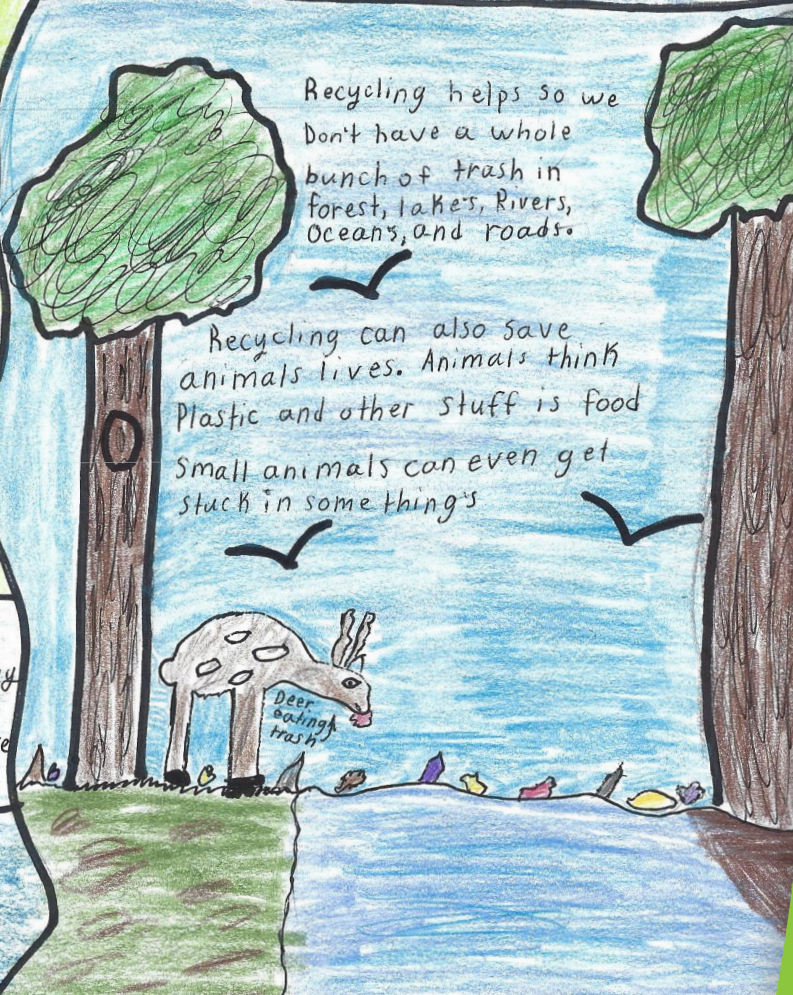 Recycling helps so we
Don't have a whole
bunch of trash in
forest, lake's, Rivers,
Ocean's, and roads.
Recycling can also save
animals lives. Animals think
Plastic and other stuff is food
Small animals can even get
stuck in some thing's
Deer
eating
trash
y
e